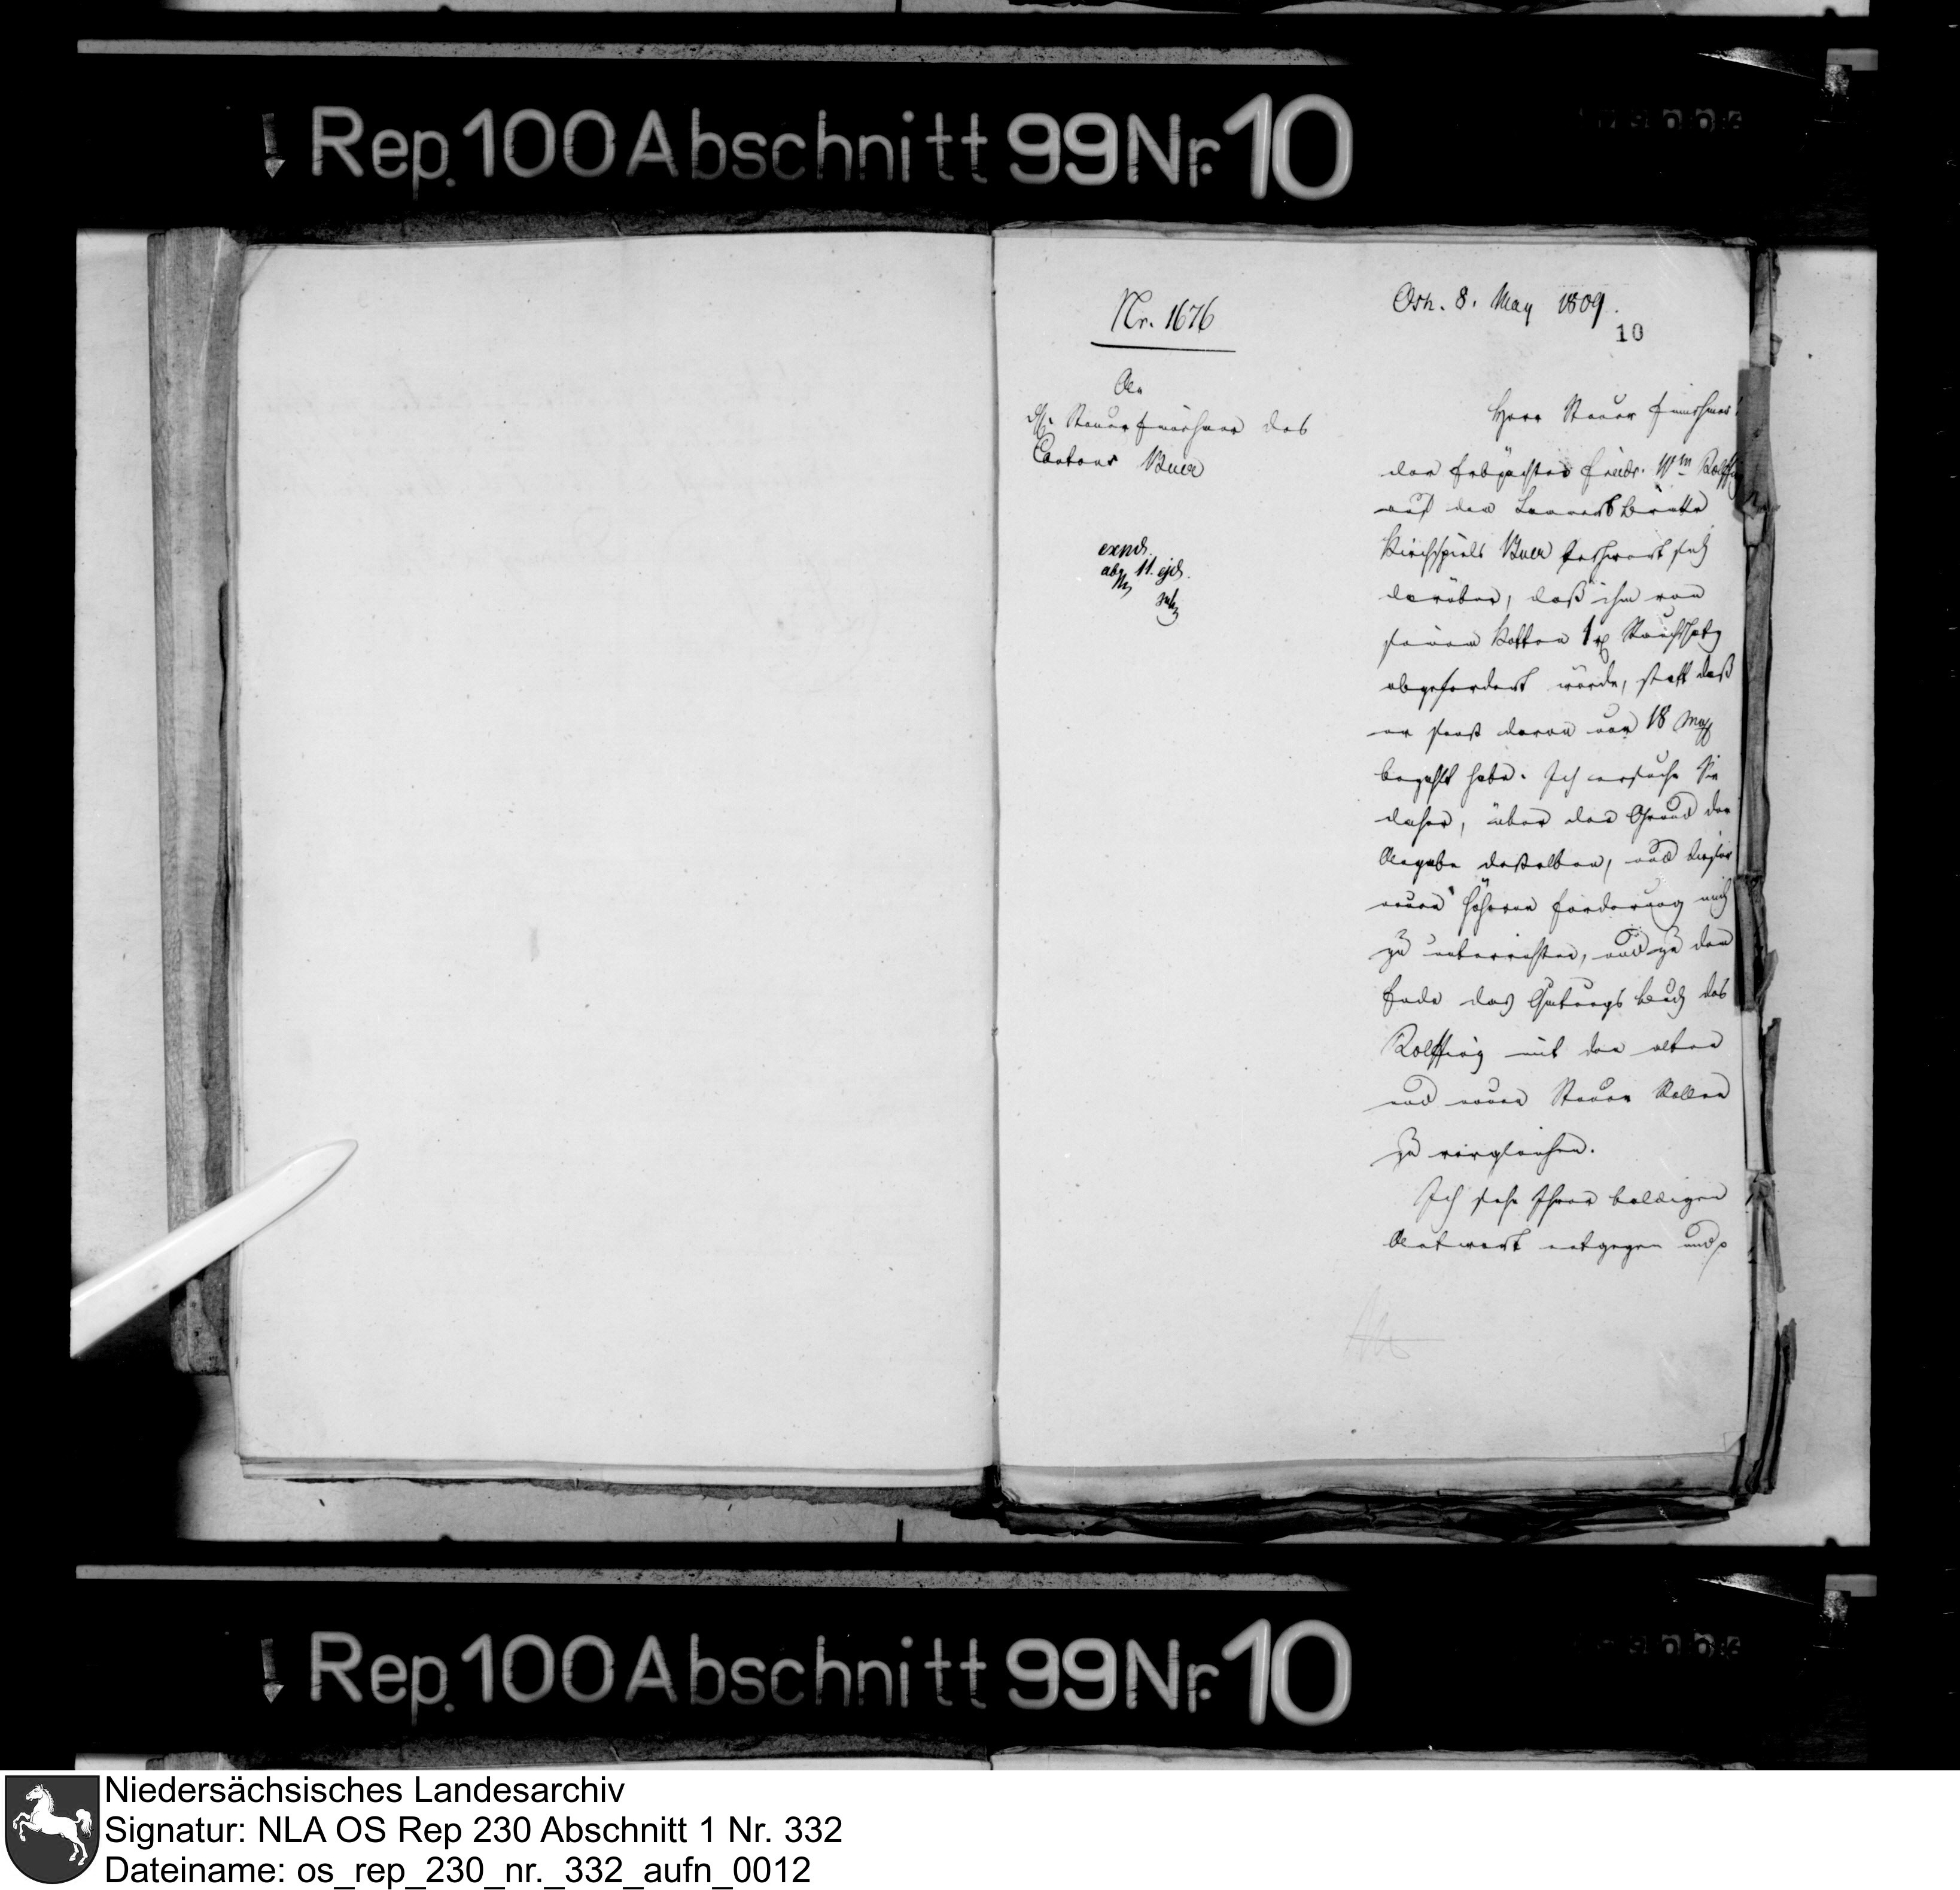 Rep. 100 Abschnitt 99 Nr. 10
Nr. 1676
Osn. 8. May 1809.
10
An
Steuereinnehmer des
Cantons Buer
expdt.
abg. 11. ejd.
Herr Steuer Einnehmer!
der Erbpächter Friedr. Wm Rolffing
auf dem
Kirchspiels Buer beschwert sich
darüber, daß ihm von
seinem Kotten 1 rt Rauchschatz
abgefordert würde, statt daß
er sonst davon nur 18 mgl
bezahlt habe. Ich ersuche Sie
daher, über den Grund der
Angabe desselben, und dieser
neuen höhern Forderung mich
zu unterrichten, und zu dem
Ende das Quitungs buch des
Rolffing mit den alten
und neuen Steuer Rollen
zu vergleichen.
Ich sehe Ihrer baldigen
Antwort entgegen und
Rep. 100 Abschnitt 99 Nr. 10
Niedersächsisches Landesarchiv
Signatur: NLA OS Rep 230 Abschnitt 1 Nr. 332
Dateiname: os_rep_230_nr._332_aufn_0012